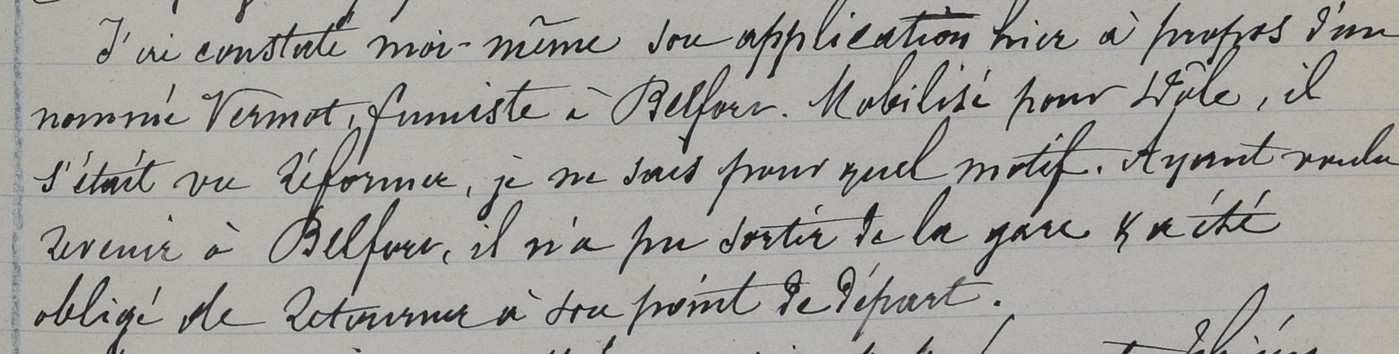 J'ai constaté moi-même son application hier à propos d'un
nommé Vermot, fumiste à Belfort. Mobilisé pour Dôle, il
s'était vu réformer, je ne sais pour quel motif. Ayant voulu
revenir à Belfort, il n'a pu sortir de la gare & a été
obligé de retourner à son point de départ.